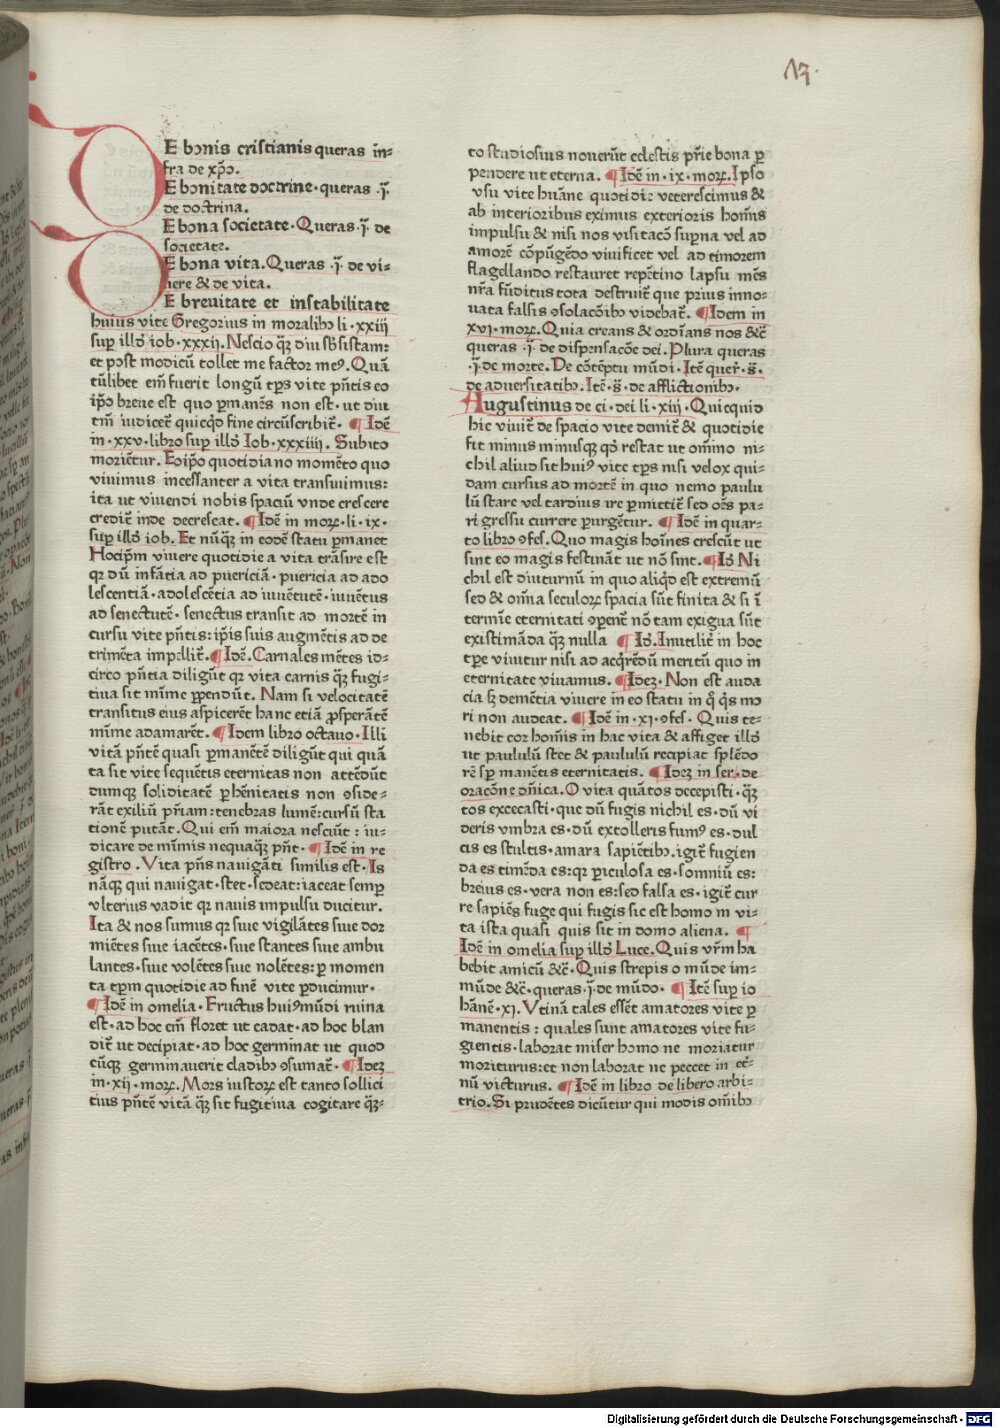 13.
E bonis cristianis queras in-
fra de xp̄o.
E bonitate doctrine·queras ·j̄.
de doctrina.
E bona societate·Queras·j̄·de
societate.
E bona vita.Queras ·j̄·de vi-
uere & de vita.
E breuitate et instabilitate
huius vite Gregorius in moralibꝫ li·xxiij
suꝑ illd̄ iob·xxxij. Nescio qꝫ diu sb̄sistam:
et post modicū tollet me factor meꝰ. Quā
tūlibet em̄ fuerit longū tp̄s vite pn̄tis eo
ip̄o breue est quo ꝑmanēs non est·ut diu
tm̄ iudicet̄ quicqd̄ fine circūscribit̄· ¶ Idē
in·xxv·libro suꝑ illd̄ Iob·xxxiiij. Subito
morient̄ur. Eoip̄o quotidiano momēto quo
viuimus incessanter a vita transiuimus:
ita ut viuendi nobis spaciū vnde crescere
credit̄ inde decrescat. ¶ Idē in moꝝ·li·ix·
suꝑ illd̄ iob. Et nūqꝫ in eodē statu ꝑmanet
Hocip̄m viuere quotidie a vita trāsire est
qꝛ dū infātia ad puericiā·puericia ad ado
lescentiā·adolescētia ad iuuētutē·iuuētus
ad senectutē·senectus transit ad mortē in
cursu vite pn̄tis:ip̄is suis augmētis ad de
trimēta impellit̄.¶ Idē.Carnales mētes id-
circo pn̄tia diligūt qꝛ vita carnis qꝫ fugi-
tiua sit mīme ꝑpendūt. Nam si velocitatē
transitus eius aspicerēt hanc etiā ꝓsperātē
mīme adamarēt. ¶ Idem libro octauo·Illi
vitā pn̄tē quasi ꝑmanētē diligūt qui quā
ta sit vite sequētis eternitas non attēdūt
dumqꝫ soliditatē ꝑhēnitatis non ꝯside-
rāt exiliū pr̄iam:tenebras lumē:cursū sta
tionē putāt.Qui em̄ maiora nesciūt : iu-
dicare de mīmis nequaqꝫ pn̄t· ¶ Idē in re
gistro ·Vita pn̄s nauigāti similis est·Is
nāqꝫ qui nauigat·stet·sedeat:iaceat semꝑ
vlterius vadit qꝛ nauis impulsu ducitur.
Ita & nos sumus qꝛ siue vigilātes siue dor
miētes siue iacētes·siue stantes siue ambu
lantes·siue volētes siue nolētes:ꝑ momen
ta tp̄m quotidie ad finē vite ꝑducimur·
¶ Idē in omelia·Fructus huiꝰmūdi ruina
est·ad hoc em̄ floret ut cadat·ad hoc blan
dit̄ ut decipiat·ad hoc germinat ut quod
cūqꝫ germinauerit cladibꝫ ꝯsumat̄· ¶ Idez
in·xij·moꝝ.Mors iustoꝝ est tanto sollici
tius pn̄tē vitā qꝫ sit fugitiua cogitare qꝫ-
to studiosius nouerūt celestis pr̄ie bona ꝑ
pendere ut eterna. ¶ Idē in·ix·moꝝ.Ipso
vsu vite huāne quotidie veterescimus &
ab interioribus eximus exterioris hom̄s
impulsu & nisi nos visitacō suꝑna vel ad
amorē cōpūgēdo viuificet vel ad timorem
flagellando restauret repētino lapsu mēs
nr̄a fūditus tota destruit̄ que prius inno-
uata falsis ꝯsolacōibꝫ videbat̄. ¶ Idem in
xvj·moꝝ.Quia creans & ordīans nos &c̄
queras ·j̄·de dispensacōe dei.Plura queras
·j̄·de morte.De cōtēptu mūdi·Itē quer̄·s̄·
de aduersitatibꝫ.Itē·s̄·de afflictionibꝫ·
Augustinus de ci·dei li·xiij·Quicquid
hic viuit̄ de spacio vite demit̄ & quotidie
fit minus minusqꝫ qd̄ restat ut om̄ino ni-
chil aliud sit huiꝰ vite tp̄s nisi velox qui-
dam cursus ad mortē in quo nemo paulu
lū stare vel tardius ire ꝑmittit̄ sed oēs pa-
ri gressu currere ꝑurgētur. ¶ Idē in quar-
to libro ꝯfes.Quo magis hoīnes crescūt ut
sint eo magis festināt ut nō sint.¶ Id̄ Ni
chil est diuturnū in quo aliqd̄ est extremū
sed & om̄ia seculoꝝ spacia sūt finita & si ī
termīe eternitati ꝯꝑent̄ nō tam exigua sūt
existimāda qꝫ nulla ¶ Id̄.Inutilit̄ in hoc
tp̄e viuitur nisi ad acq̄rēdū meritū quo in
eternitate viuamus. ¶Idez·Non est auda
cia sꝫ demētia viuere in eo statu in q̄ q̄s mo
ri non audeat. ¶ Idē in·xj·ꝯfes·Quis te-
nebit cor hoīmis in hac vita & affiget illd̄
ut paululū stet & paululū recipiat splēdo
rē sꝑ manētis eternitatis. ¶ Idez in ser·de
oracōne dn̄ica.O vita quātos decepisti·qꝫ
tos excecasti·que dū fugis nichil es·dū vi
deris vmbra es·dū extolleris fumꝰ es·dul
cis es stultis·amara sapiētibꝫ·igit̄ fugien
da es timēda es:qꝛ ꝑiculosa es·somniū es:
breuis es·vera non es:sed falsa es·igit̄ cur
re sapiēs fuge qui fugis sic est homo in vi-
ta ista quasi quis sit in domo aliena. ¶
Idē in omelia suꝑ illd̄ Luce.Quis vr̄m ha
bebit amicū &c̄·Quis strepis o mūde im-
mūde &c̄·queras·j̄·de mūdo· ¶ Itē suꝑ io
hānē·xj.Vtinā tales essēt amatores vite ꝑ
manentis : quales sunt amatores vite fu-
gientis·laborat miser homo ne moriatur
moriturus:et non laborat ne peccet in et̄-
nū victurus. ¶ Idē in libro de libero arbi-
trio.Si prudētes dicūtur qui modis om̄ibꝫ
Digitalisierung gefördert durch die Deutsche Forschungsgemeinschaft - DFG